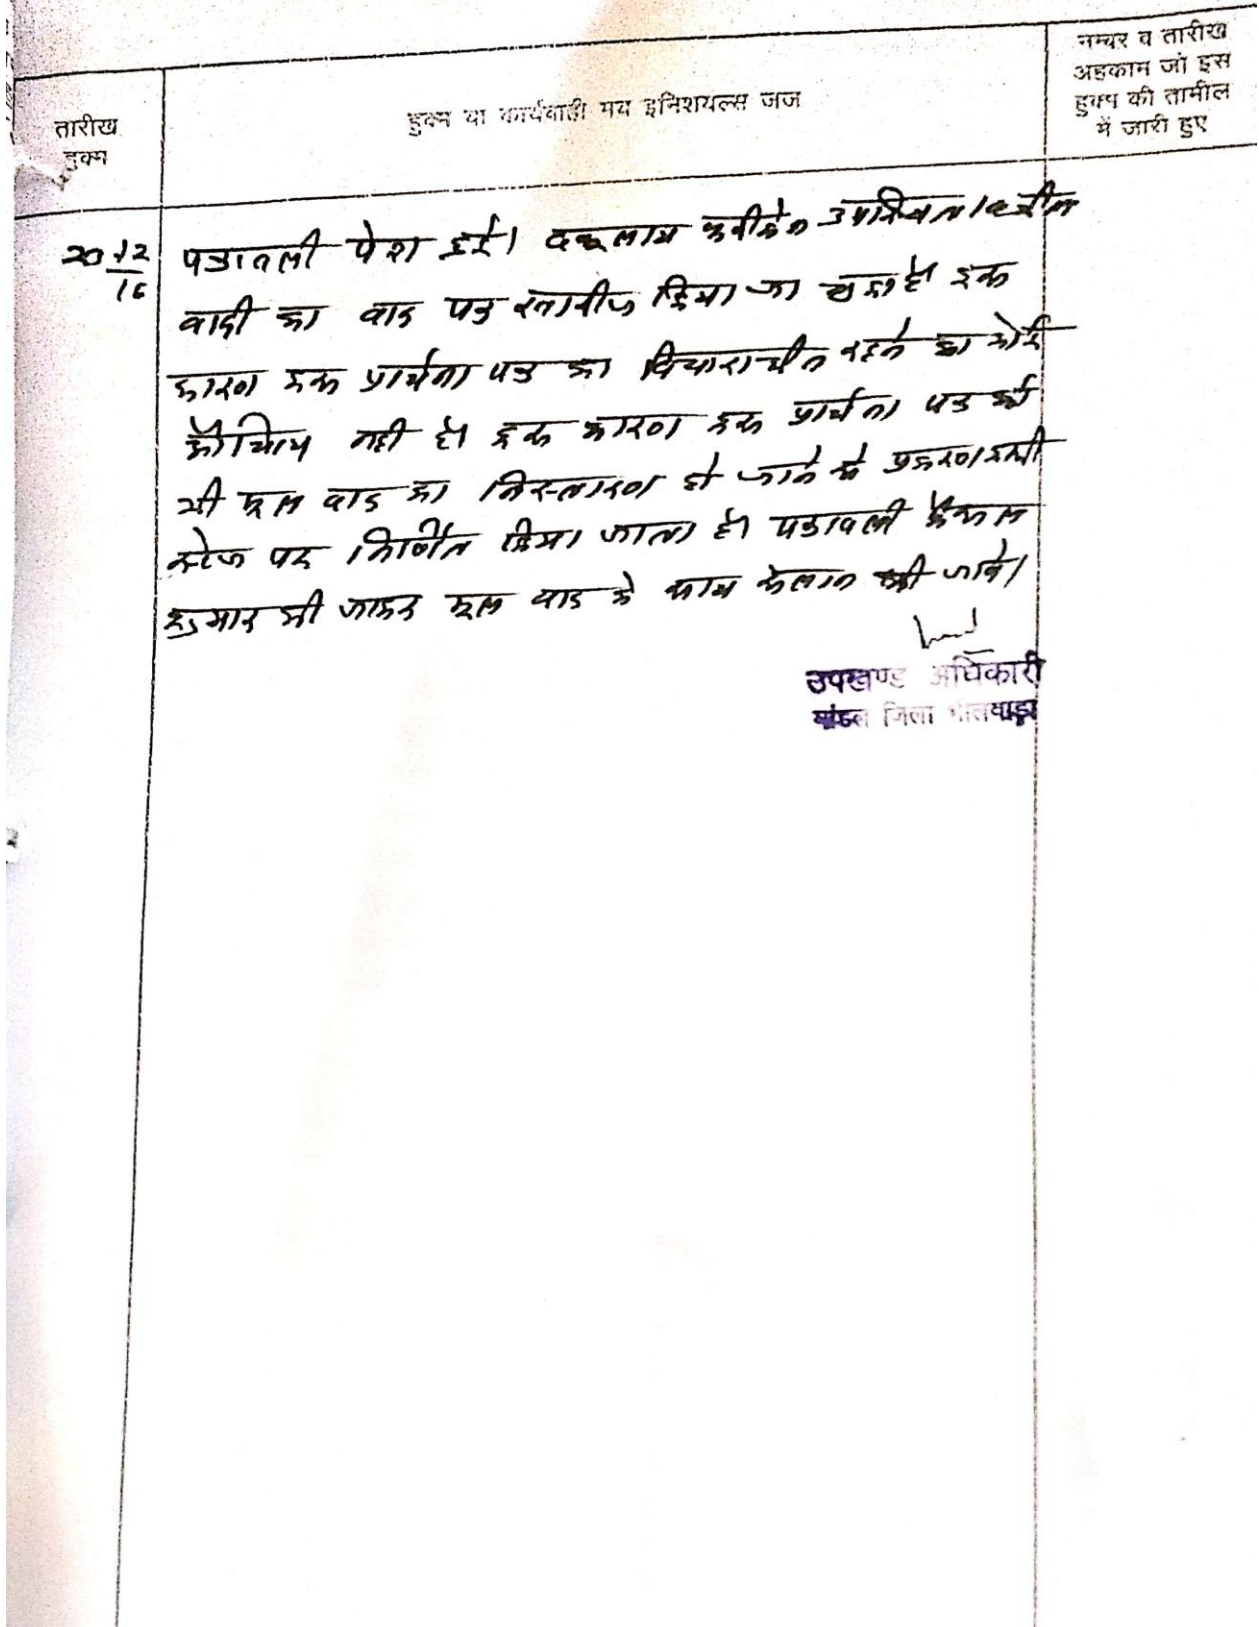 तारीख
हुक्म
हुक्म या कार्यवाही मय इनिशयल्स जज
नम्बर व तारीख
अहकाम जो इस
हुक्म की तामील
में जारी हुए
20.12
16
पत्रावली पेश हुई। वकूलाय फरीकेन उपस्थित। वकील
वादी का वाद पत्र खारीज किया जा चुका है इस
कारण इस प्रार्थना पत्र का विचाराधीन रहने का कोई
औचित्य नही है। इस कारण इस प्रार्थना पत्र को
भी मूल वाद का निस्तारण हो जाने से प्रकरण इसी
स्टेज पर निर्णित किया जाता है। पत्रावली फैसल
शुमार की जाकर मूल वाद के साथ संलग्न की जावे।
उपखण्ड अधिकारी
मांडल जिला भीलवाड़ा